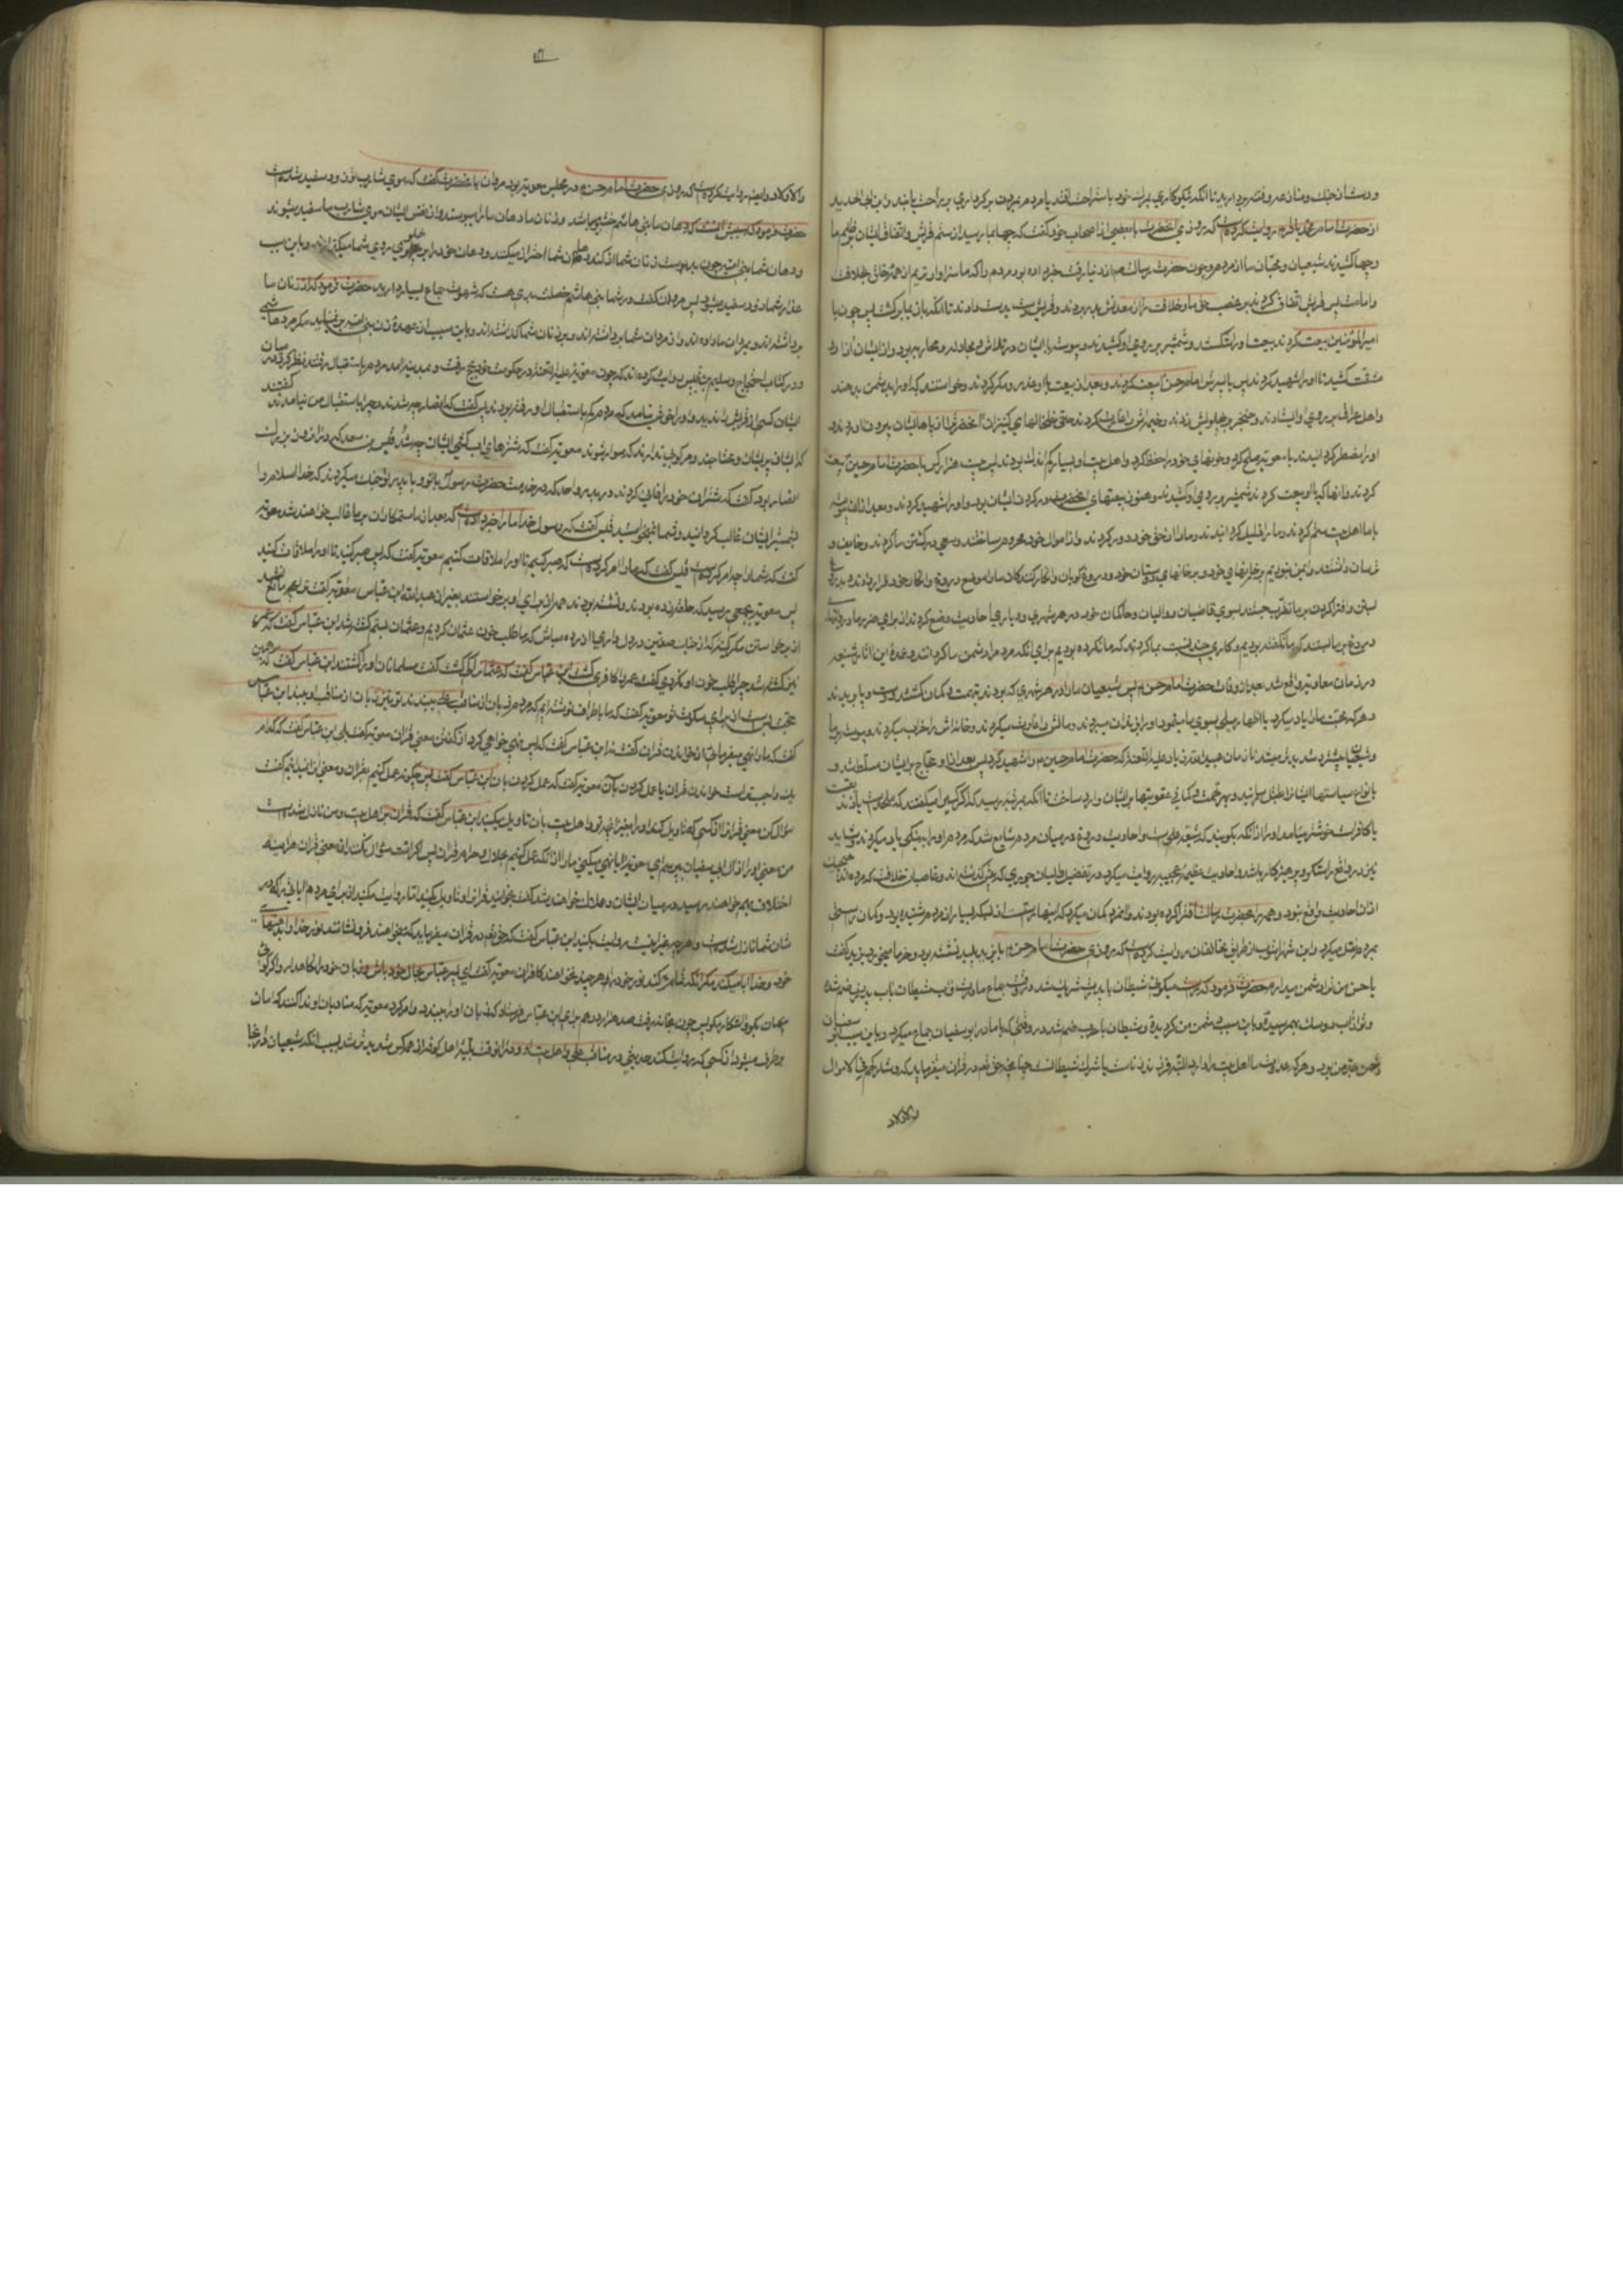 و دست از جنك و منازعه و فتنه بردارید تا انکه نیکوکاری براحت خود باستراحت افتد یا مردم از بدکرداری براحت یابند و ابن ابی الحدید
از حضرت امام محمد باقر روایت کرده است که روزی انحضرت با بعضی از اصحاب خود گفت که چها بما رسید از ستم قریش و اتفاق ایشان بر ظلم ما
و چها کشیدند شیعیان و محبان ما از مردم و چون حضرت رسالت از دنیا رفت خبر داده بود مردم را که ما سزاوارتریم از همه خلق بخلافت
و امامت پس قریش اتفاق کردند بر غصب حق ما و خلافت را از معدنش بدر بردند و قریش دست بدست دادند تا انکه باز بما برگشت پس چون با
امیر المؤمنین بیعت کردند بیعت او را شکستند و شمشیر بر روی او کشیدند و پیوسته با ایشان در تلاش و مجادله و محاربه بود و از ایشان ازار و
مشقت کشید تا او را شهید کردند پس با پسرش امام حسن بیعت کردند و بعد از بیعت با او غدر و مکر کردند و خواستند که او را بدشمن بدهند
و اهل عراق بر روی او ایستادند و خنجر بر پهلویش زدند و خیمه اش را غارت کردند حتی خلخالهای کنیزان انحضرت را از پاهایشان بیرون اوردند
و او را مضطر کردانیدند تا با معویه صلح کرد و خونهای خود را حفظ کرد و اهل بیت او بسیار کم بودند پس بیست هزار کس با حضرت امام حسین بیعت
کردند و انها که با او بیعت کردند شمشیر بر روی او کشیدند و هنوز بیعتهای انحضرت در کردن ایشان بود و او را شهید کردند و بعد از ان پیوسته
با ما اهل بیت ستم کردند و ما را ذلیل کردانیدند و ما را از حق خود دور کردند و از اموال خود محروم ساختند و سعی در کشتن ما کردند و خایف و
ترسان داشتند و ایمن نبودیم بر خونهای خود و بر خونهای دوستان خود و دروغ کویان و انکار کنندکان ما را موضع دروغ و انکار خود قرار دادند و بدروغ
بستن و افترا کردن بر ما تقرب جستند بسوی قاضیان و والیان و حاکمان خود در هر شهری و دیاری احادیث وضع کردند از برای ضرر ما و روایتها
دروغ بر ما بستند که ما نکفته بودیم و کاری چند نسبت بما کردند که ما نکرده بودیم برای انکه مردم را دشمن ما کردانند و عمدهٔ این اثار شنیعه
در زمان معاویه واقع شد بعد از وفات حضرت امام حسن پس شیعیان ما را در هر شهری که بودند بتهمت و کمان کشتند و دست و پا بریدند
و هر که محبت ما را یاد میکرد یا اظهار میلی بسوی ما مینمود او را بزندان میبردند و مالش را غارت میکردند و خانه اش را خراب میکردند و پیوسته بر ما
و شیعیان ما شدید تر میشد تا زمان عبید الله بن زیاد علیه اللعنة که حضرت امام حسین را شهید کرد پس بعد از او حجاج بر ایشان مسلط شد و
بانواع سیاستها ایشان را بقتل رسانید و بهر تهمت و کمانی عقوبتها بر ایشان وارد ساخت تا انکه بمرتبه رسید که اکر کسی را میکفتند که ملحد است یا زندیق
یا کافر است خوشتر میامد او را از انکه بکویند که شیعه علی است و احادیث دروغ در میان مردم شایع شد که مردم او را به نیکی یاد میکردند و شاید
نیز در واقع راستکو و پرهیزکار باشد و احادیث عظیمهٔ عجیبه روایت میکرد در تفضیل والیان جوری که پیش کذشته اند و غاصبان خلافت که هیچیک
از ان احادیث واقع نبود و همه را بحضرت رسالت افترا کرده بودند و انمرد کمان میکرد که اینها راست است از بسکه بسیار از مردم شنیده بود و کمان راستی
بمردم نقل میکرد و ابن شهراشوب از طرق مخالفان روایت کرده است که روزی حضرت امام حسن با یزید پلید نشسته بود و خرما میخوردند یزید کفت
یا حسن من ترا دشمن میدارم حضرت فرمود که راست میکوئی شیطان با پدرت شریک شد در وقت جماع مادرت و اب شیطان با اب پدرت ضم شده
و تو از اب هر دو بهم رسیدهٔ و باین سبب دشمن من کردیدهٔ و شیطان با حرب ضم شد در وقتی که با مادر ابو سفیان جماع میکرد و باین سبب ابو سفیان
دشمن جد من بود و هر که عداوت ما اهل بیت را دارد البته فرزند زنا است یا شرک شیطانست چنانچه حق تعم در قران میفرماید که و شارکهم فی الاموال
والاولاد
والاولاد و ایضا روایت کرده است که روزی حضرت امام حسن در مجلس معویه بود مروان با انحضرت کفت که موی شارب تو زود سفید شده است
حضرت فرمود که سببش انست که دهان ما بنی هاشم خوشبو میباشد و زنان ما دهان ما را میبوسند و از نفس ایشان موی شارب ما سفید میشود
و دهان شما بنی امیه چون بدبوست زنان شما از کند دهان شما احتراز میکنند و دهان خود را بر پهلوی روی شما میکذارند و باین سبب
عذار شما زود سفید میشود پس مروان کفت در شما بنی هاشم خصلت بدی هست که شهوت جماع بسیار دارید حضرت فرمود که از زنان ما
برداشته اند و بمردان ما داده اند و از مردان شما برداشته اند و بر زنان شما کذاشته اند و باین سبب از عهدهٔ زن بنی امیه بر نمی اید مکر مرد هاشمی
و در کتاب احتجاج و سلیم بن قیس روایت کرده اند که چون معویه علیه اللعنة در حکومت خود بحج رفت و بمدینه امد مردم باستقبال رفتند نظر کرد در میان
ایشان کسی از قریش را ندید و او را خوش نیامد که مردم کم باستقبال او رفته بودند پس کفت که انصار چه شدند و چرا باستقبال من نیامدند کفتند
که ایشان پریشان و محتاجند و مرکوبی ندارند که سوار شوند معویه کفت که شترهای اب کشی ایشان چه شد قیس بن سعد که سرکردهٔ
انصار بود کفت که شتران خود را فانی کردند در بدر و احد که در خدمت حضرت رسول با تو و با پدر تو جنک میکردند که خدا اسلام را
بشمشیر ایشان غالب کردانید و شما نمیخواستید قیس کفت که رسول خدا ما را خبر داده است که بعد از ما ستمکاران بر ما غالب خواهند شد معویه
کفت که شما را چه امر کرده است قیس کفت که ما را امر کرده است که صبر کنیم تا او را ملاقات کنیم معویه کفت که پس صبر کنید تا او را ملاقات کنید
پس معویه بجمعی رسید که حلقه زده بودند و نشسته بودند همه از برای او برخواستند بغیر از عبد الله بن عباس معویه کفت ترا چه مانع شد
از برخواستن مکر کینه که از جنک صفین در دل داری ازرده مباش که ما طلب خون عثمان کردیم و عثمان بستم کشته شد ابن عباس کفت که عمر
نیز کشته شد چرا طلب خون او نکردی کفت عمر را کافری کشت ابن عباس کفت که عثمان را کی کشت کفت مسلمانان او را کشتند ابن عباس کفت که همین
حجت بس است از برای سکوت تو معویه کفت که ما باطراف نوشته ایم که مردم زبان از مناقب علی ببندند تو نیز زبان از مناقب او ببند ابن عباس
کفت که ما را نهی میفرمائی از خواندن قران کفت نه ابن عباس کفت که پس نهی خواهی کرد از کفتن معنی قران معویه کفت بلی ابن عباس کفت که کدام
یک واجب تر است خواندن قران یا عمل کردن بان معویه کفت که عمل کردن بان ابن عباس کفت پس چکونه عمل کنیم بقران و معنی انرا ندانیم کفت
سؤال کن معنی قران را از کسی که تاویل کند او را بغیر انچه تو و اهل بیت بان تاویل میکنید ابن عباس کفت که قران بر اهل بیت من نازل شده است
من معنی او را از ال ابی سفیان بپرسم ای معویه ایا نهی میکنی ما را از انکه عمل کنیم بحلال و حرام قران پس اکر امت سؤال نکنند از معنی قران هراینه
اختلاف بهم خواهند رسید در میان ایشان و هلاک خواهند شد کفت بخوانید قران را و تاویل بکنید اما روایت مکنید از برای مردم ایاتی را که در
شان شما نازل شده است و هر چه غیر اینست روایت بکنید ابن عباس کفت که حق تعم در قران میفرماید که میخواهند فرو نشانند نور خدا را بدهنهای
خود و خدا ابا میکند مکر انکه تمام کند نور خود را هر چند نخواهند کافران معویه کفت ای پسر عباس بحال خود باش و زبان خود را نکاهدار و اکر کوئی
پنهان بکو و اشکار مکو پس چون بخانه رفت صد هزار درهم برای ابن عباس فرستاد که زبان او را ببندد و امر کرد معویه که منادیان او ندا کنند که امان
برطرف میشود از کسی که روایت کند حدیثی در مناقب علی و اهل بیت او و در انوقت بلیهٔ اهل کوفه از همه کس شدید تر شد بسبب انکه شیعیان در انجا